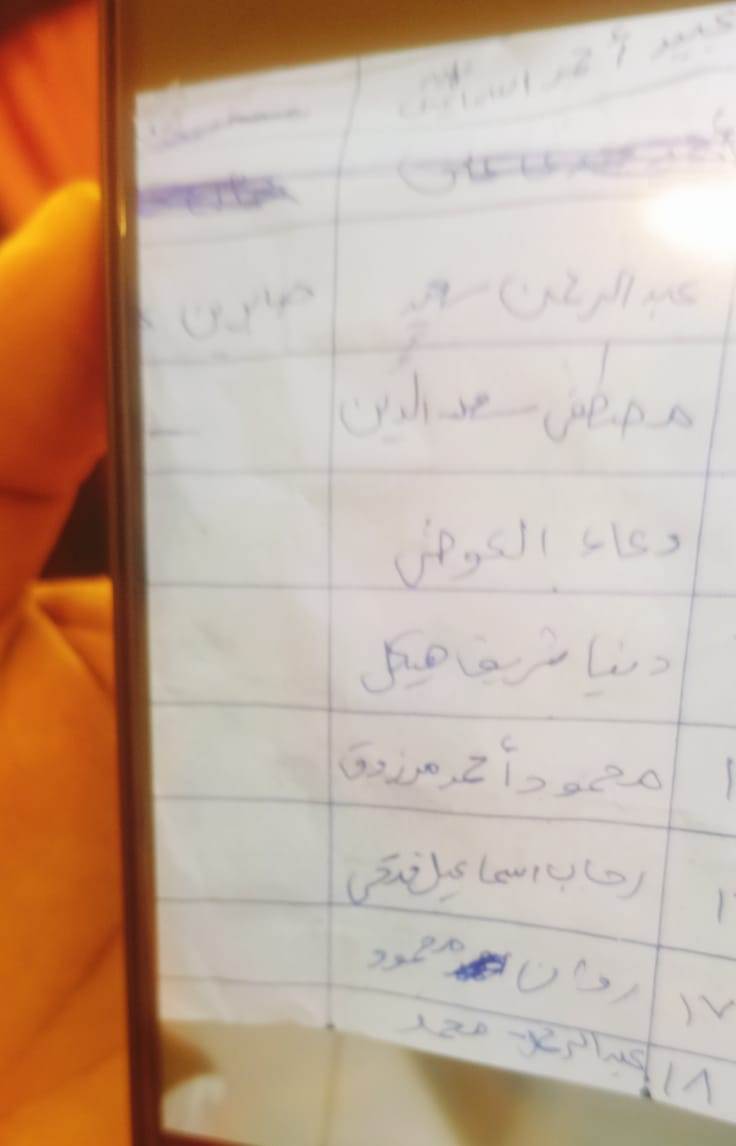 عبير أحمد اسماعيل
عبد الرحمن سعيد صابرين
مصطفى سعد الدين
دعاء العوضى
دنيا شريف هيكل
محمود أحمد مرزوق
رحاب اسماعيل فتحى
١٧ روان محمود
١٨ عبد الرحمن محمد